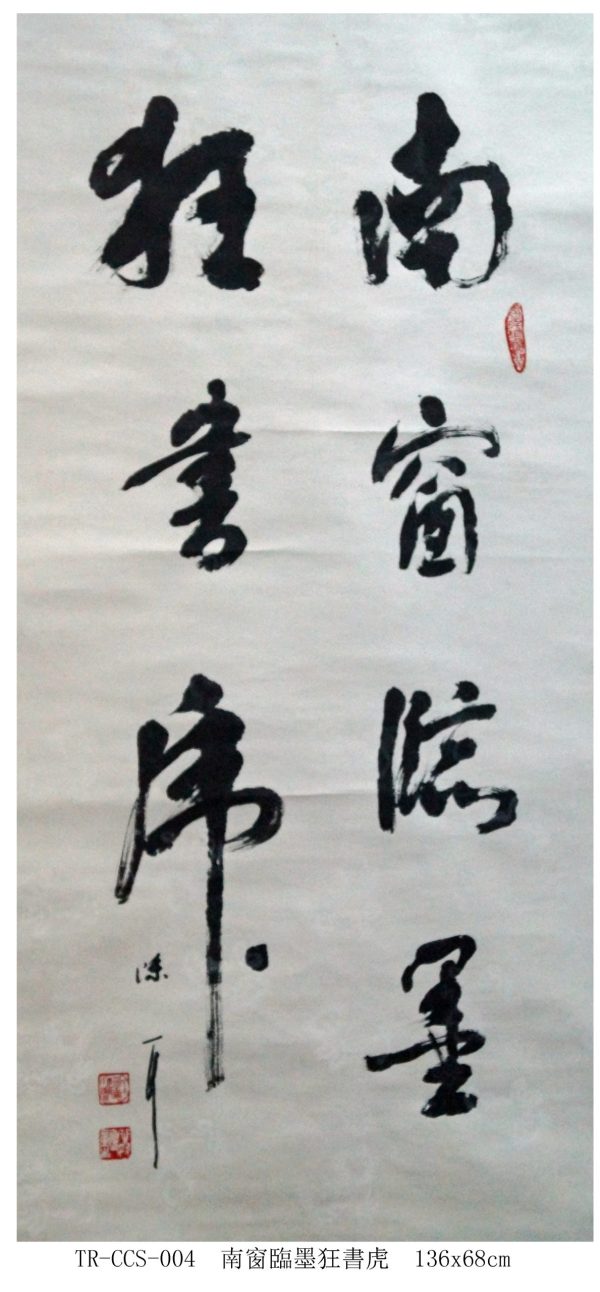 南窗臨墨
狂書虎
TR-CCS-004 南窗臨墨狂書虎 136x68cm